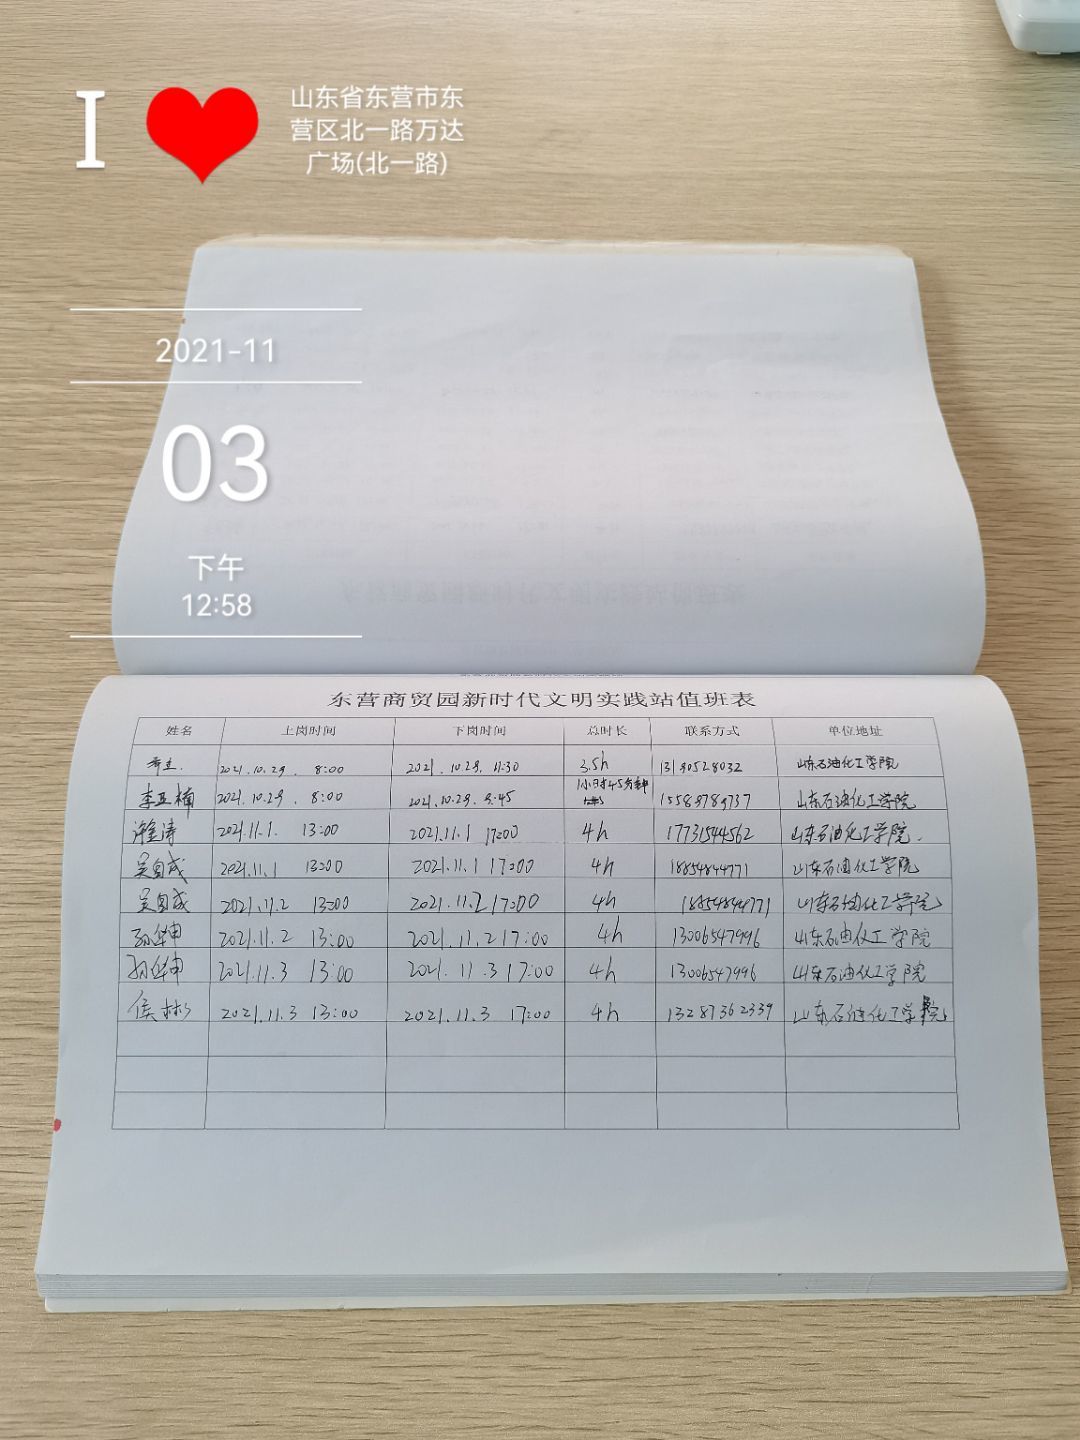 I
山东省东营市东
营区北一路万达
广场(北一路)
2021-11
03
下午
12:58
东营商贸园新时代文明实践站值班表
姓名 上岗时间 下岗时间 总时长 联系方式 单位地址
2021.10.29. 8:00 2021.10.29. 11:30 3.5h 13190528032 山东石油化工学院
李亚楠 2021.10.29. 8:00 2021.10.29. 9:45 1小时45分钟 15589789737 山东石油化工学院
2021.11.1. 13:00 2021.11.1 17:00 4h 17731544562 山东石油化工学院.
吴自成 2021.11.1 13:00 2021.11.1 17:00 4h 18854844771 山东石油化工学院
吴自成 2021.11.2 13:00 2021.11.2 17:00 4h 18854844771 山东石油化工学院
孙华申 2021.11.2 13:00 2021.11.2 17:00 4h 13006547996 山东石油化工学院
孙华申 2021.11.3 13:00 2021.11.3 17:00 4h 13006547996 山东石油化工学院
侯彬 2021.11.3 13:00 2021.11.3 17:00 4h 13287362339 山东石油化工学院